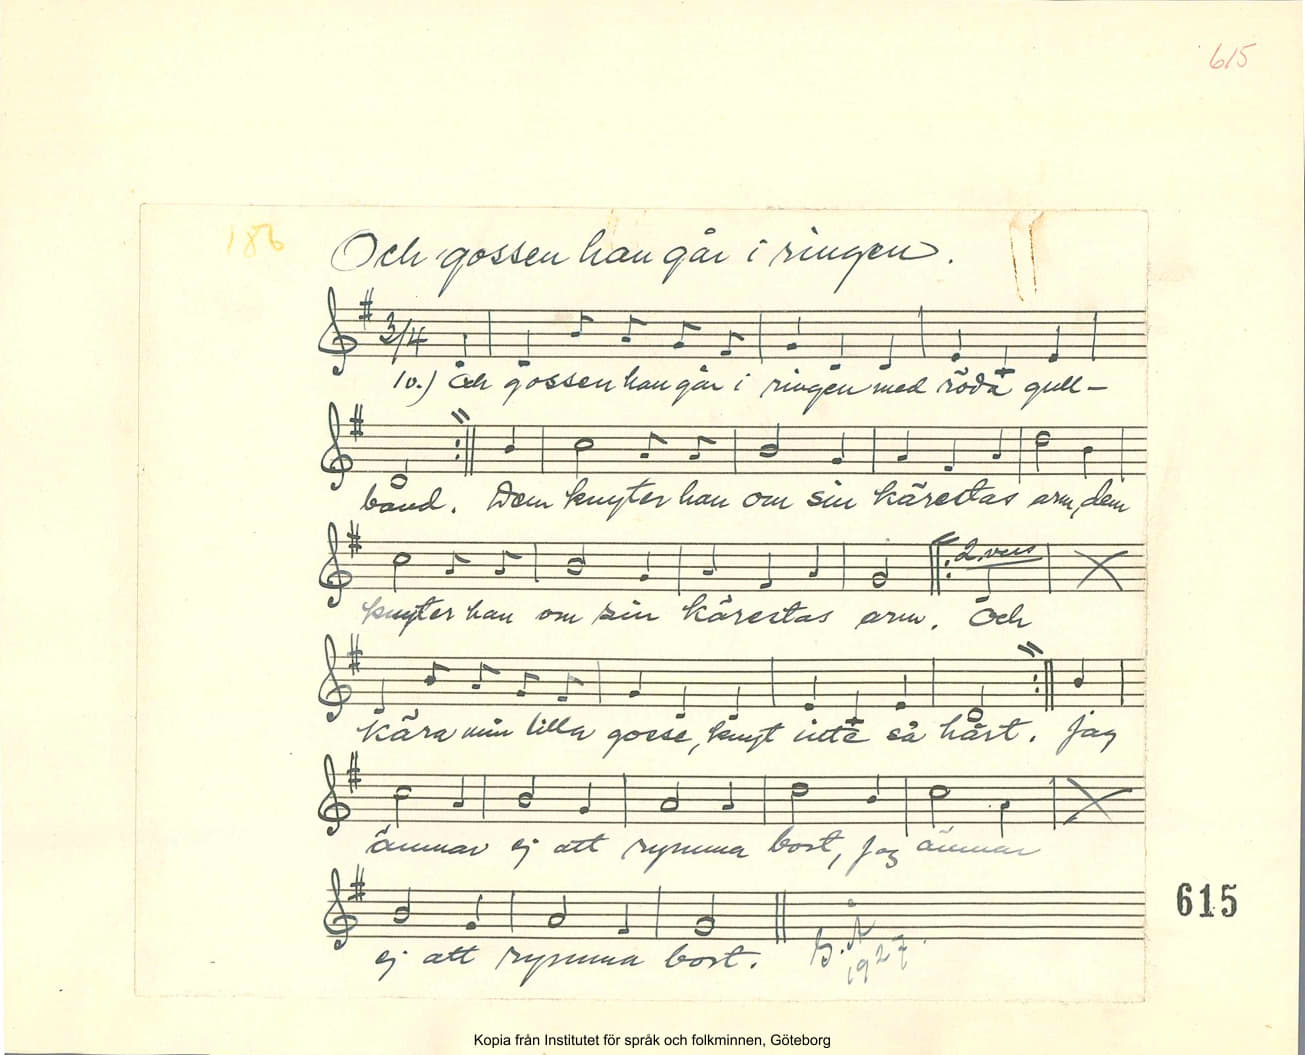 615
186
Och gossen han går i ringen.
3/4
1v.) Och gossen han går i ringen med röda gull-
band. Dem knyter han om sin kärestas arm, dem
knyter han om sin kärestas arm. 2. vers Och
kära min lilla gosse, knyt inte så hårt. Jag
ämnar ej att rymma bort, jag ämnar
ej att rymma bort.
1927
615
Kopia från Institutet för språk och folkminnen, Göteborg